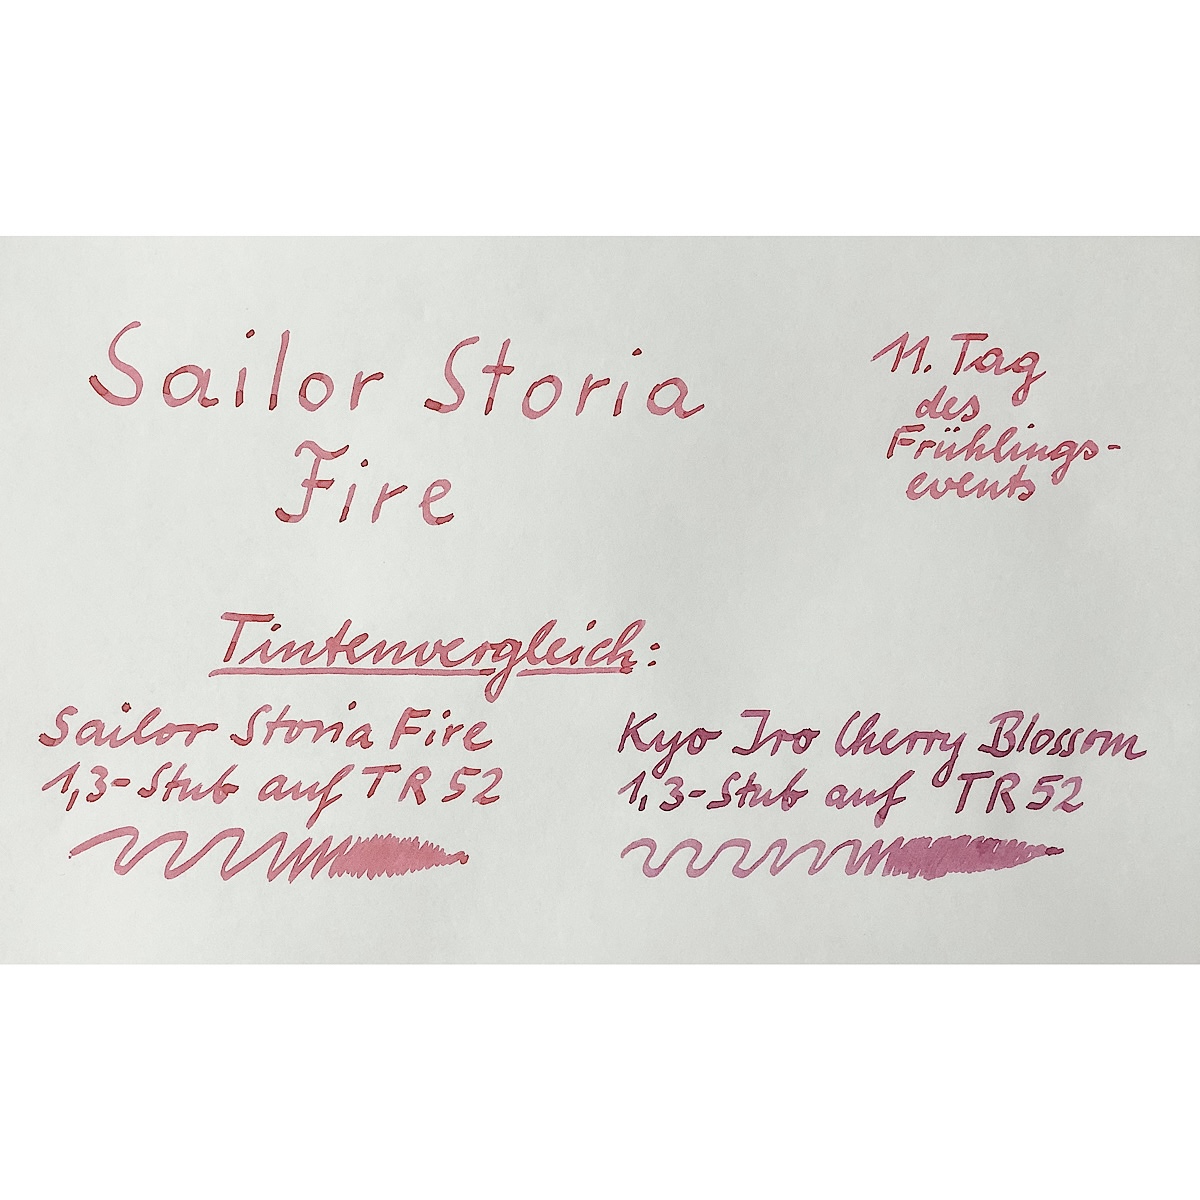 Sailor Storia
Fire
11. Tag
des
Frühlings-
events
Tintenvergleich:
Sailor Storia Fire
1,3-Stub auf TR 52
Kyo Iro Cherry Blossom
1,3-Stub auf TR 52